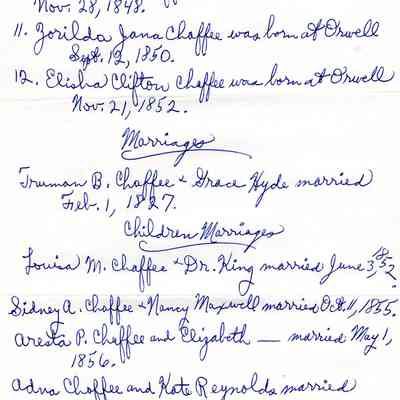 Nov. 28, 1848.
11. Zorilda Jana Chaffee was born at Orwell
Sept. 12, 1850.
12. Elisha Clifton Chaffee was born at Orwell
Nov. 21, 1852.
Marriages
Truman B. Chaffee & Grace Hyde married
Feb. 1, 1827.
Children Marriages
Louisa M. Chaffee & Dr. King married June 3, 1852.
Sidney A. Chaffee & Nancy Maxwell married Oct. 11, 1855.
Aresta P. Chaffee and Elizabeth — married May 1,
1856.
Adna Chaffee and Kate Reynolds married